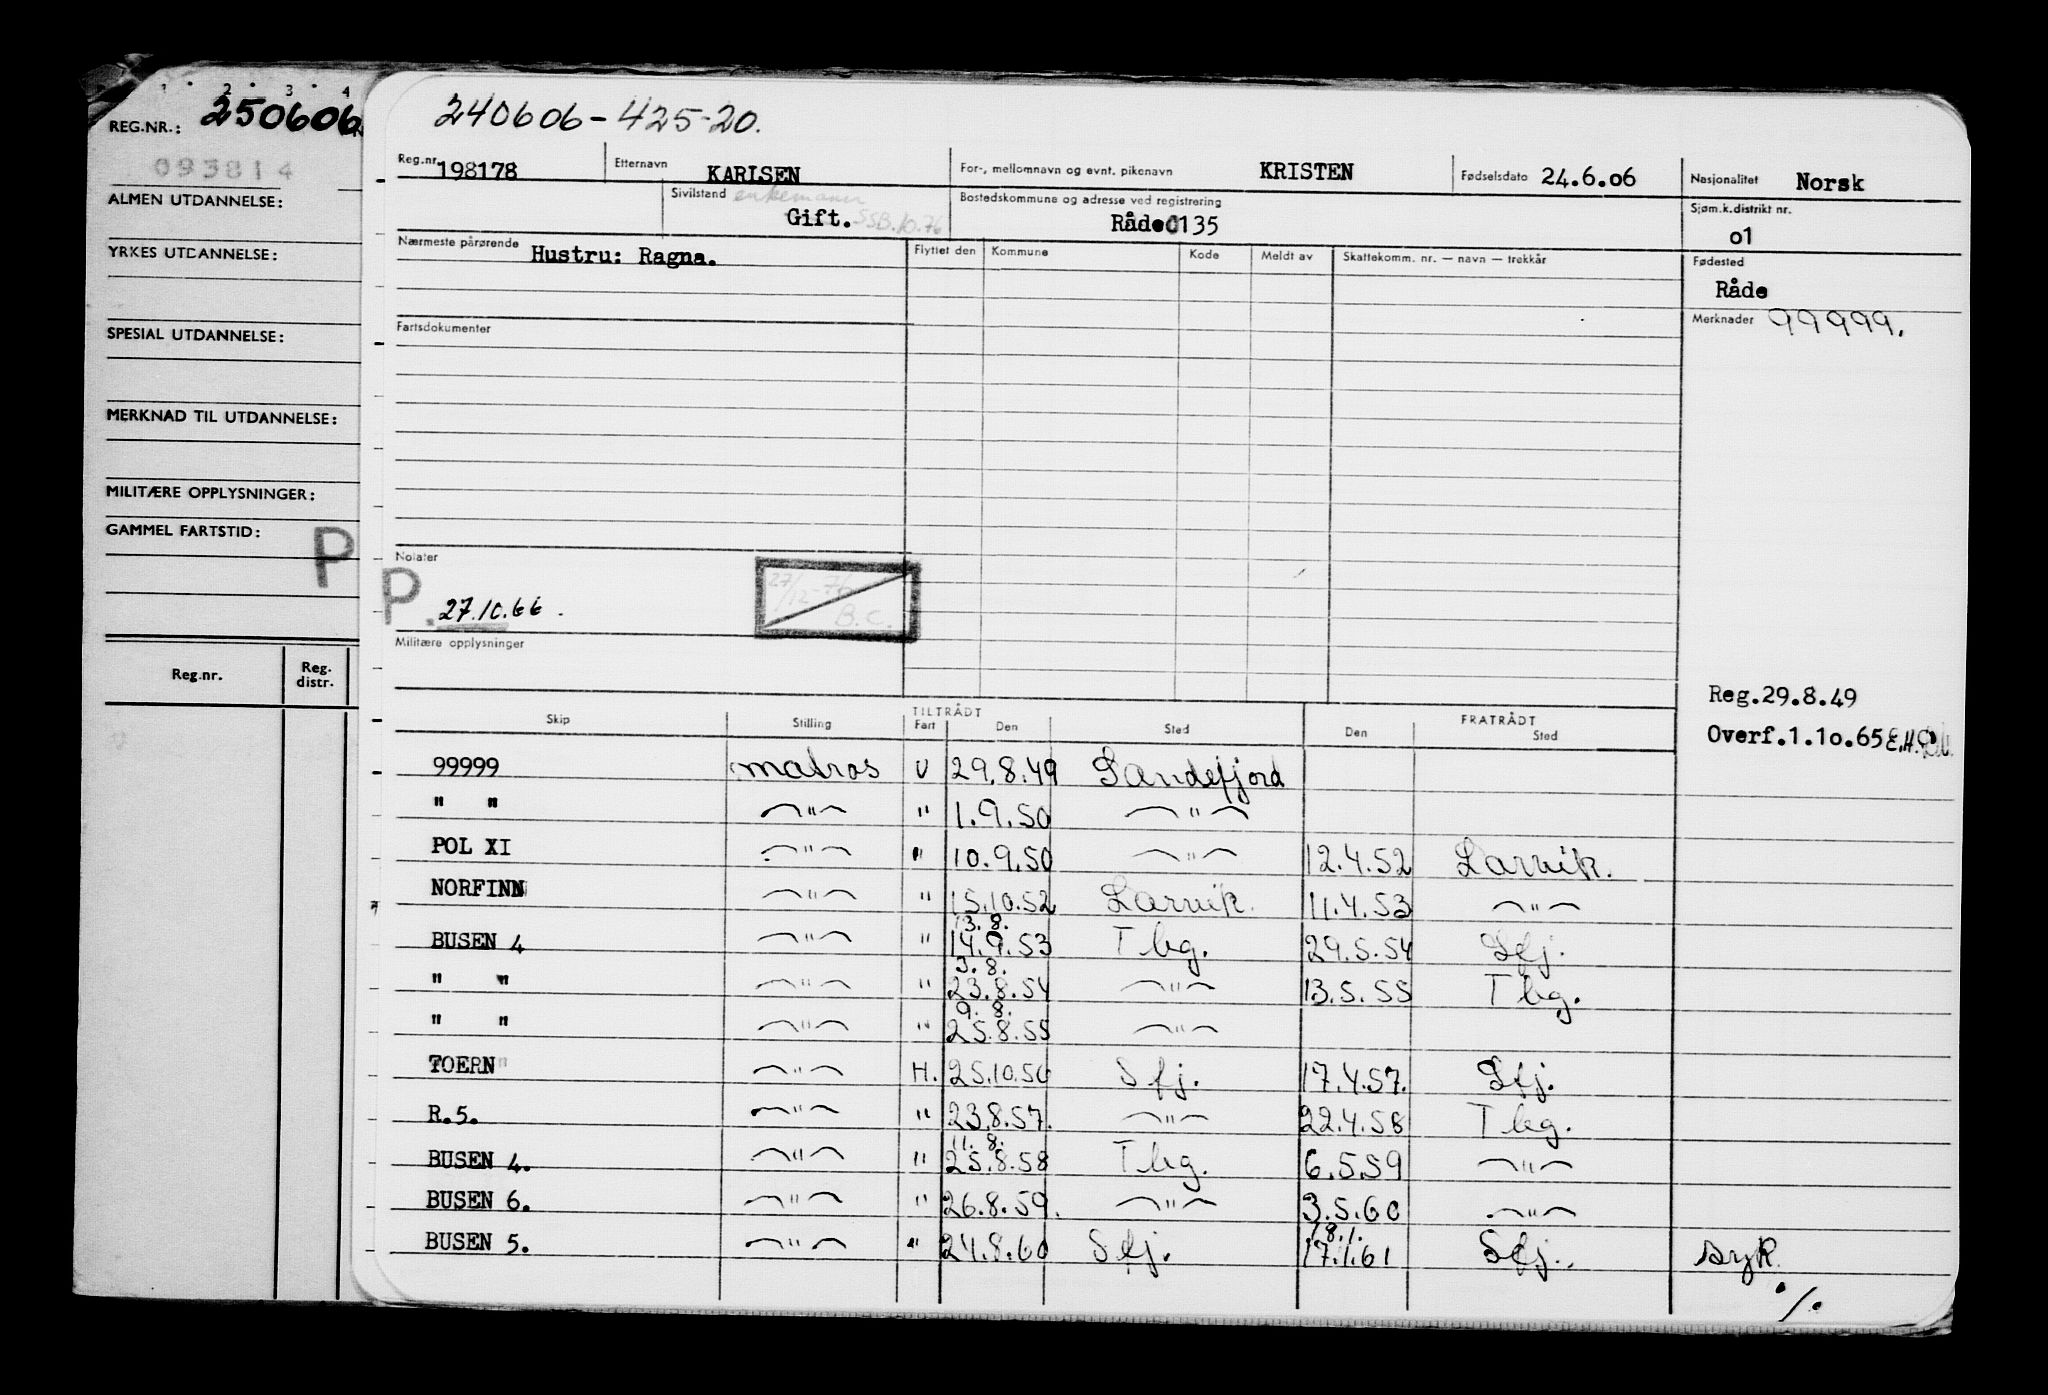 1 · 2 · 3 · 4
REG.NR.: 250606
093814
ALMEN UTDANNELSE:
YRKES UTDANNELSE:
SPESIAL UTDANNELSE:
MERKNAD TIL UTDANNELSE:
MILITÆRE OPPLYSNINGER:
GAMMEL FARTSTID: P
Reg.nr. Reg. distr.
240606-425-20.
Reg.nr. 198178 Etternavn KARLSEN For-, mellomnavn og evnt. pikenavn KRISTEN Fødselsdato 24.6.06 Nasjonalitet Norsk
Sivilstand enkemann Gift. SSB.10.76 Bostedskommune og adresse ved registrering Råde 0135 Sjøm.k.distrikt nr. 01
Nærmeste pårørende Hustru: Ragna. Flyttet den Kommune Kode Meldt av Skattekomm. nr. — navn — trekkår Fødested Råde
Fartsdokumenter Merknader 99999.
Notater
P. 27.10.66. 27/12-76 B.C.
Militære opplysninger
Reg.29.8.49
Overf.1.10.65 E.H.
TILTRÅDT FRATRÅDT
Skip Stilling Fart Den Sted Den Sted
99999 matros U 29.8.49 Sandefjord
" " —"— " 1.9.50 —"—
POL XI —"— " 10.9.50 —"— 12.4.52 Larvik.
NORFINN —"— " 15.10.52 Larvik. 11.4.53 —"—
13.8.
BUSEN 4 —"— " 14.9.53 Tbg. 29.5.54 Sfj.
3.8.
" " —"— " 23.8.54 —"— 13.5.55 Tbg.
9.8.
" " —"— " 25.8.55 —"—
TOERN —"— H. 25.10.56 Sfj. 17.4.57. Sfj.
R.5. —"— " 23.8.57. —"— 22.4.58 Tbg.
11.8.
BUSEN 4. —"— " 25.8.58 Tbg. 6.5.59 —"—
BUSEN 6. —"— " 26.8.59. —"— 3.5.60 —"—
18.1.
BUSEN 5. —"— " 24.8.60 Sfj. 17.1.61 Sfj. syk.
./.